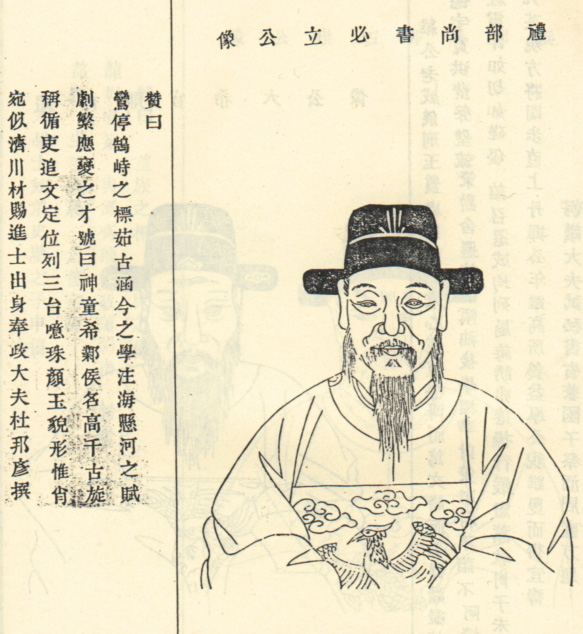 禮部尚書必立公像
贊曰
鸞停鵠峙之標茹古涵今之學注海懸河之賦
劇繁應變之才號曰神童希鄴侯名高千古旋
稱循吏追文定位列三台噫珠顏玉貌形惟肖
宛似濟川材賜進士出身奉政大夫杜邦彥撰